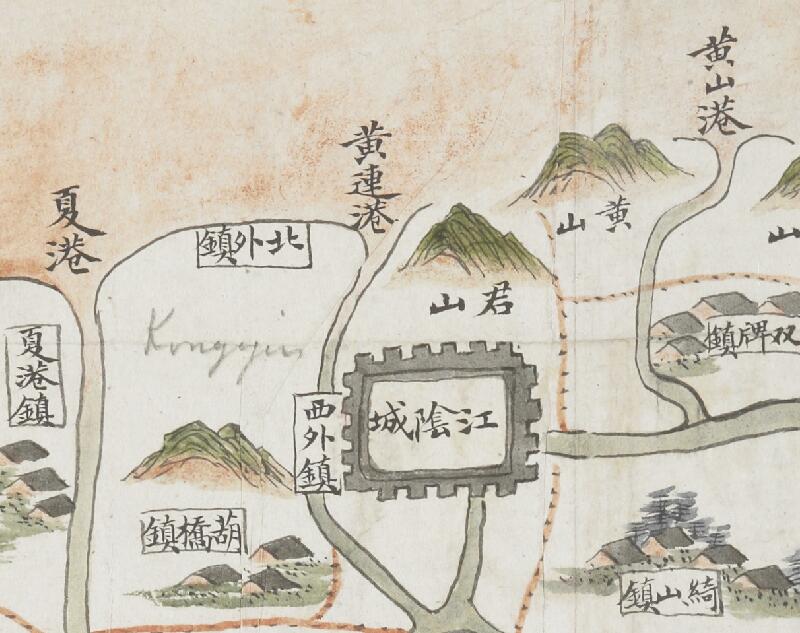 黄山港
黄連港
夏港
黄山
北外鎮
山
君山
双牌鎮
夏港鎮
Kongyin
江陰城
西外鎮
葫橋鎮
綺山鎮